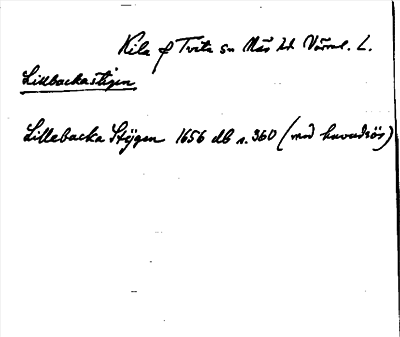 Kila f Tveta sn Näs hd Värml. L.
Lillbackastigen
Lillebacka Stijgen 1656 db s. 360 (med huvudrös)